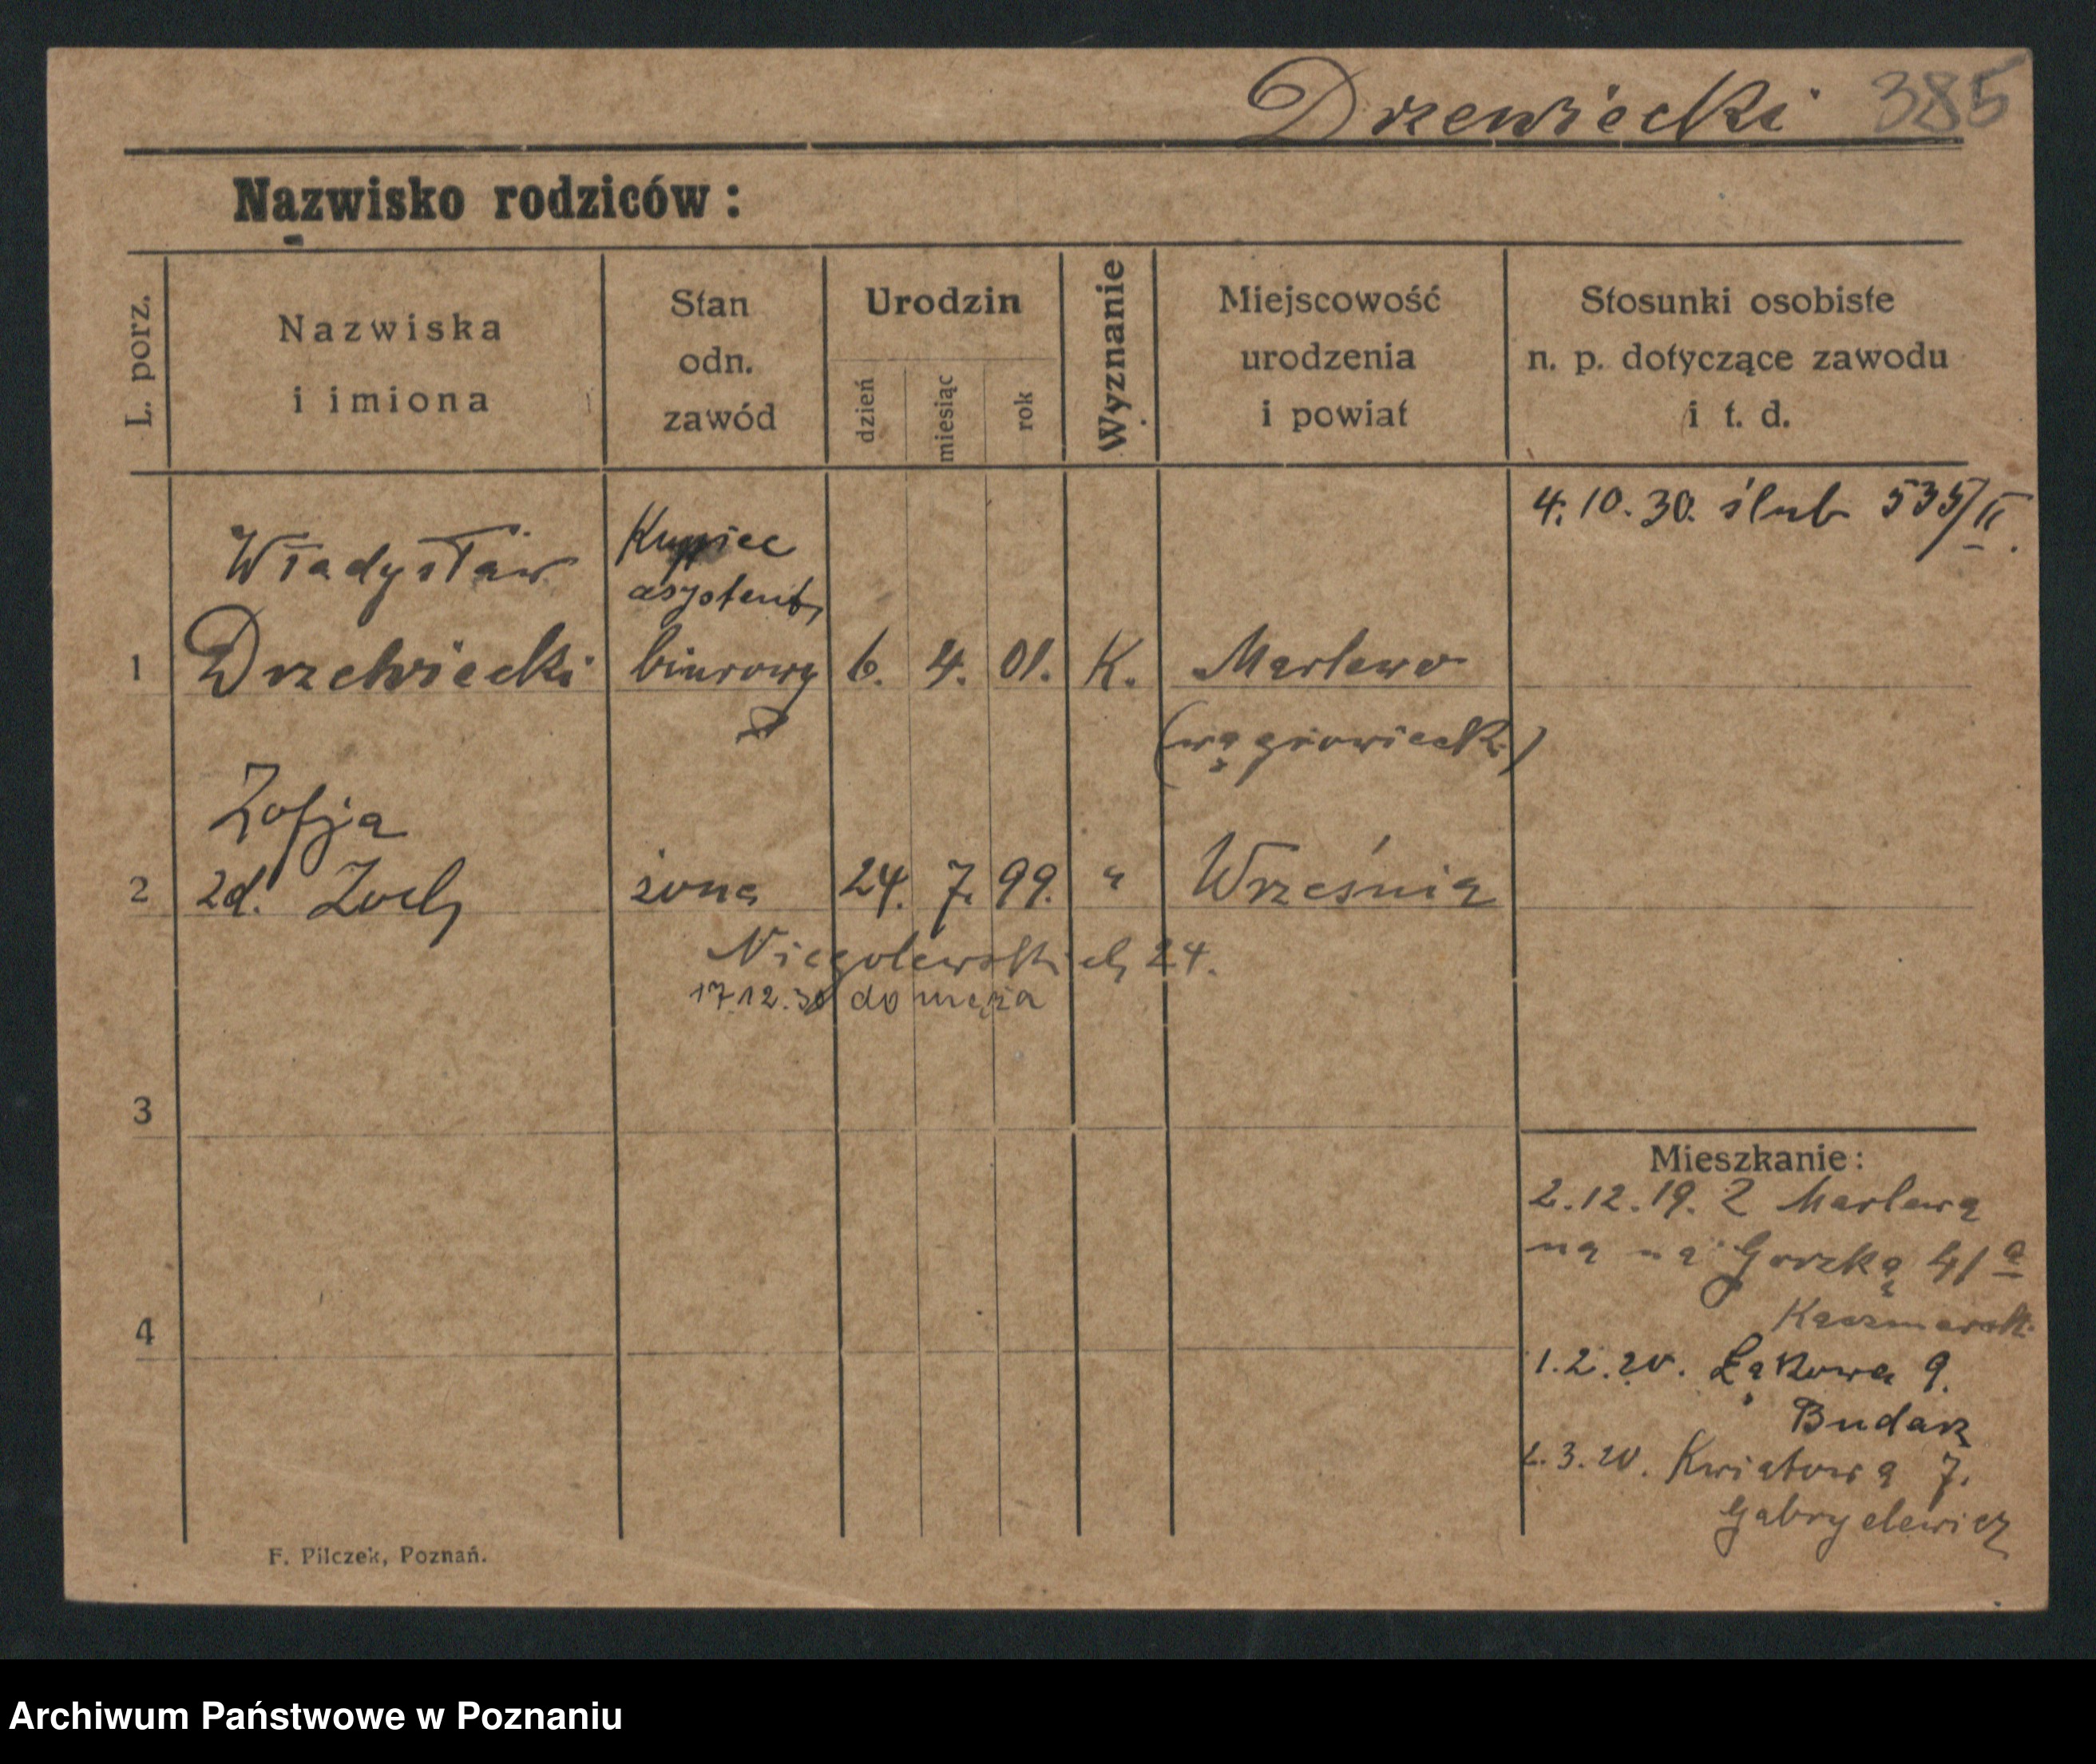 Drzewiecki 385
Nazwisko rodziców:
L. porz.
Nazwiska
i imiona
Stan
odn.
zawód
Urodzin
dzień
miesiąc
rok
Wyznanie
Miejscowość
urodzenia
i powiat
Stosunki osobiste
n. p. dotyczące zawodu
i t. d.
4. 10. 30. ślub 535/II.
Władysław
Kupiec
asystent
1 Drzewiecki biurowy 6. 4. 01. K. Marlewo
(wągrowiecki)
Zofja
2 zd. Zoch żona 24. 7. 99. " Września
Niegolewskich 24.
17.12.30 do męża
3
4
Mieszkanie:
2.12.19. Z Marlewa
na Gorzką 41a
Kaczmarek
1.2.20. Łąkowa 9.
Budarz
2.3.20. Kwiatowa 7.
Gabryelewicz
F. Pilczek, Poznań.
Archiwum Państwowe w Poznaniu